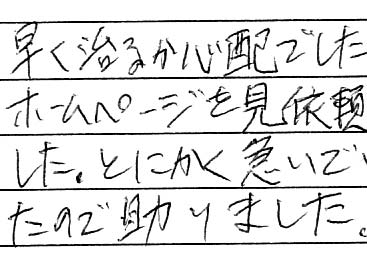 早く治るか心配でした
ホームページを見依頼
した。とにかく急いでい
たので助りました。